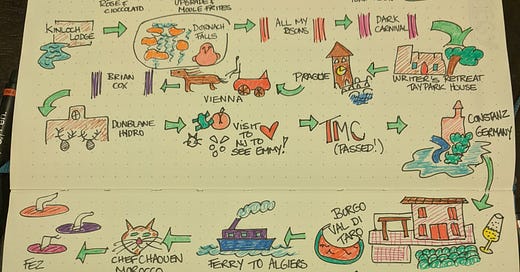 UPGRADE &
CHOCOLATO
MOVIE PRITES
KINLOCH
LODGE
DORNACH
FALLS
ALL MY
DARK
CARNIVAL
BRIAN
COX
VIENNA
PRAGUE
WRITER'S RETREAT
TAYPARK HOUSE
DUNBLANE
HYDRO
VISIT
TO
NJ TO
SEE EMMY!
TMC
(PASSED!)
CONSTANZ
GERMANY
FEZ
CHEFCHAOUEN
MOROCCO
FERRY TO ALGIERS
BORGO
VAL DI
TARO